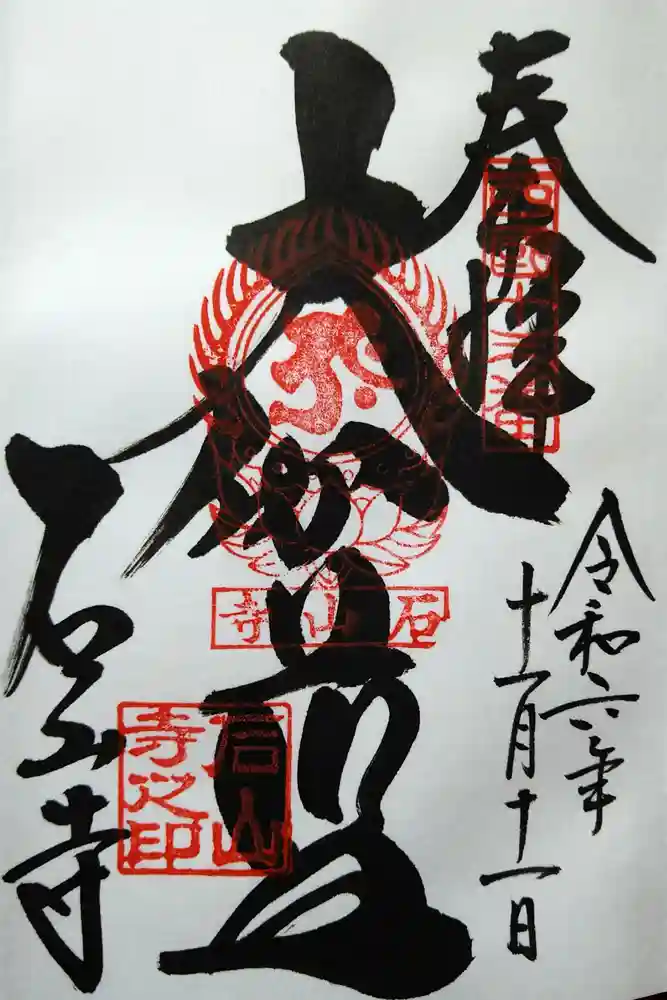 奉拝
西國十三番
令和六年
十一月十一日
大伽藍
石山寺
石山寺
石山
寺之印